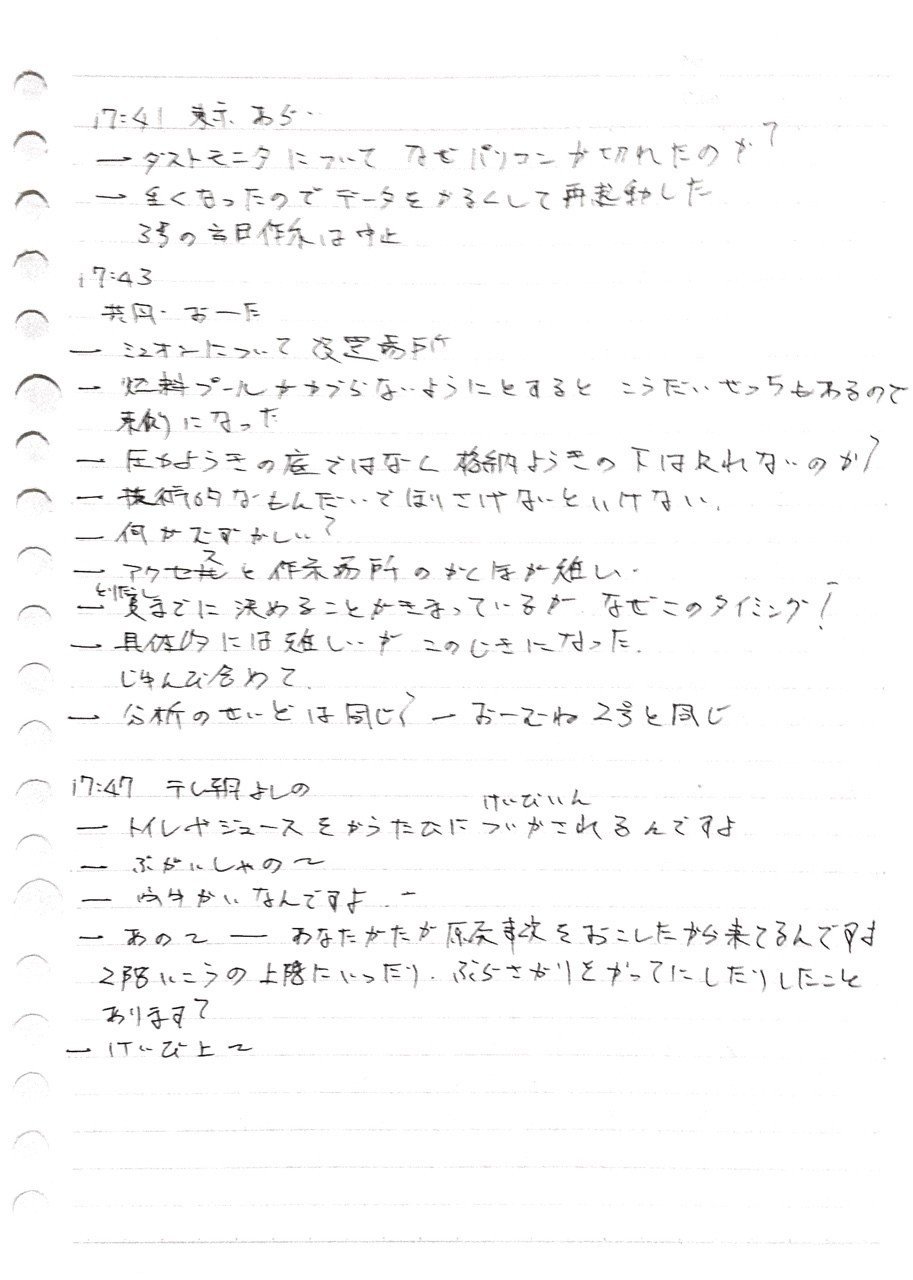 17:41 東京 あら・・
→ ダストモニタについて なぜパソコンが切れたのか?
→ 重くなったのでデータをかるくして再起動した
3号の言日作業は中止
17:43
共同・おーた
→ ミュオンについて 設置場所
→ 燃料プールがかぶらないようにとすると こうだいせっちもあるので
東側になった
→ 圧力ようきの底ではなく 格納ようきの下は见れないのか?
→ 技術的なもんだいでほりさげないといけない.
→ 何がむずかしい?
→ アクセスと作業場所のかくほが難しい.
→ とりだし 夏までに決めることがきまっているが なぜこのタイミング?
→ 具体的には難しいが このじきになった.
じゅんび含めて.
→ 分析のせいどは同じ? → おーむね2号と同じ
17:47 テレ朝よしの
けいびいん
→ トイレやジュースをかうたびについかされるんですよ
→ ぶがいしゃの〜
→ なんですよ.
→ あの〜 ― あなたがたが原発事故をおこしたから来てるんですよ
2階いこうの上階にいったり. ぶらさがりをかってにしたりしたこと
あります?
→ けいび上〜